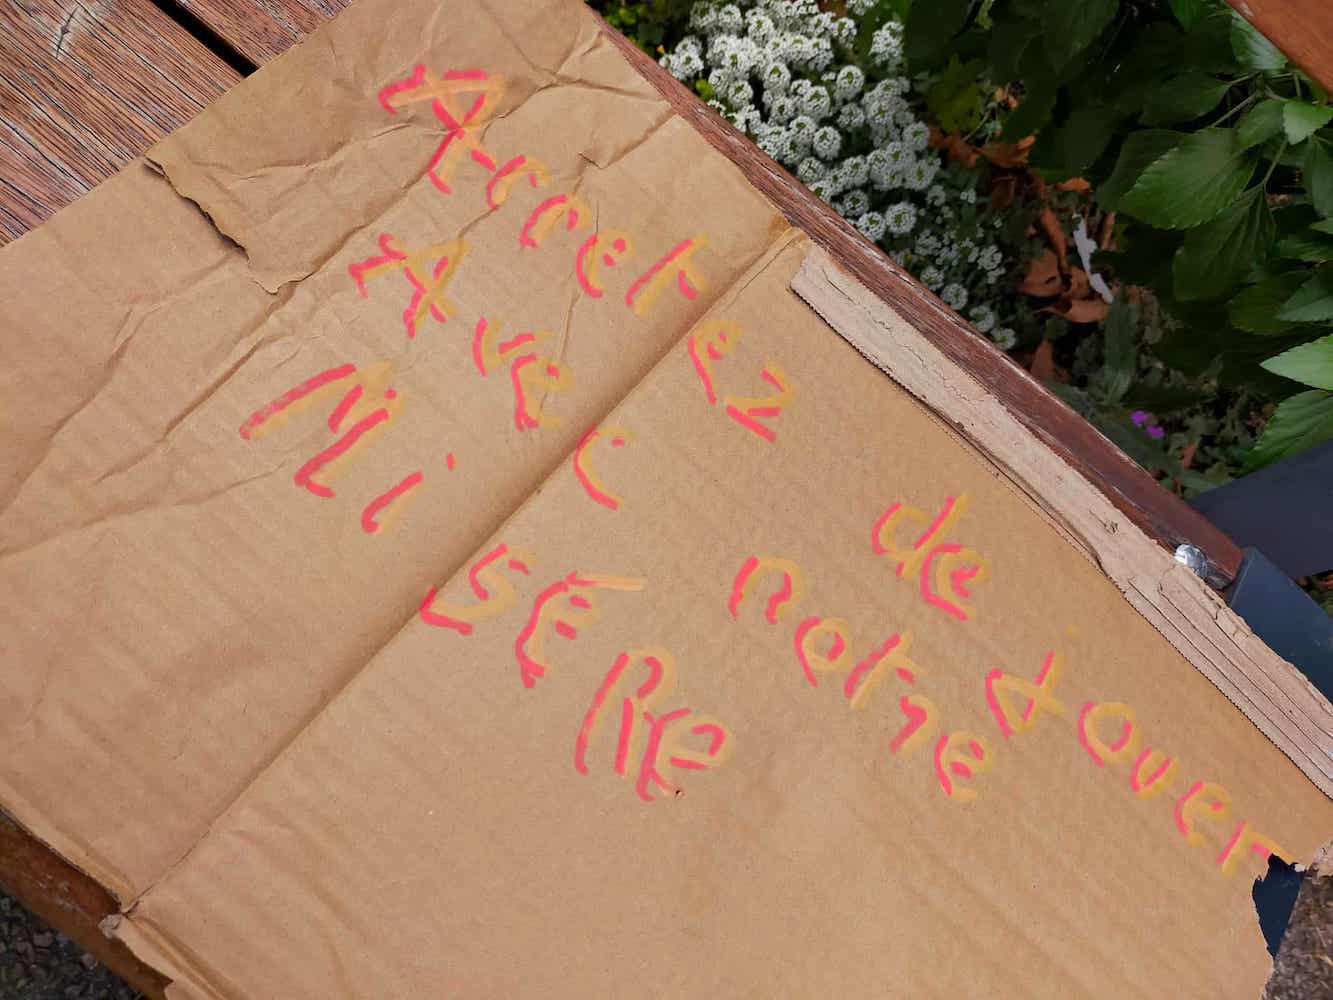 Arretez de jouer
Avec notre
MiSÉRe